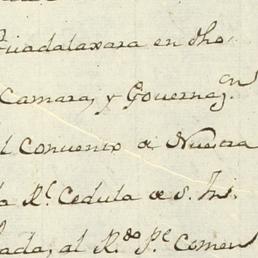 Guadalaxara en dho.
Camara, y Governa.cn
el Convento de Nuestra
la Rl. Cedula de S. In.
lada, al R.do P.e Comen